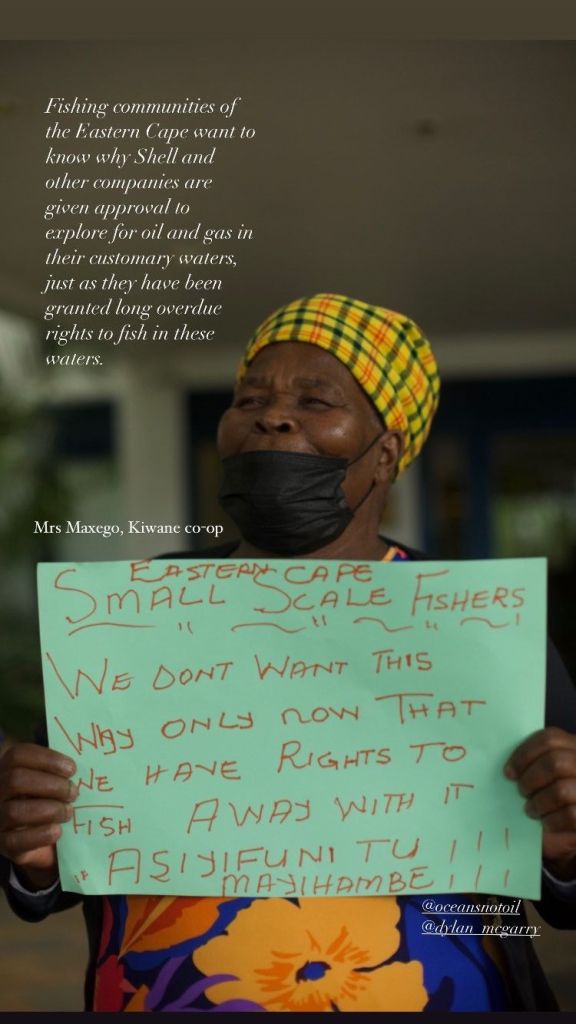 Fishing communities of
the Eastern Cape want to
know why Shell and
other companies are
given approval to
explore for oil and gas in
their customary waters,
just as they have been
granted long overdue
rights to fish in these
waters.
Mrs Maxego, Kiwane co-op
EASTERN CAPE
SMALL SCALE FISHERS
WE DONT WANT THIS
WHY ONLY NOW THAT
WE HAVE RIGHTS TO
FISH AWAY WITH IT
" ASIYIFUNI TU !!!
MAYIHAMBE !!!
@oceansnotoil
@dylan_mcgarry